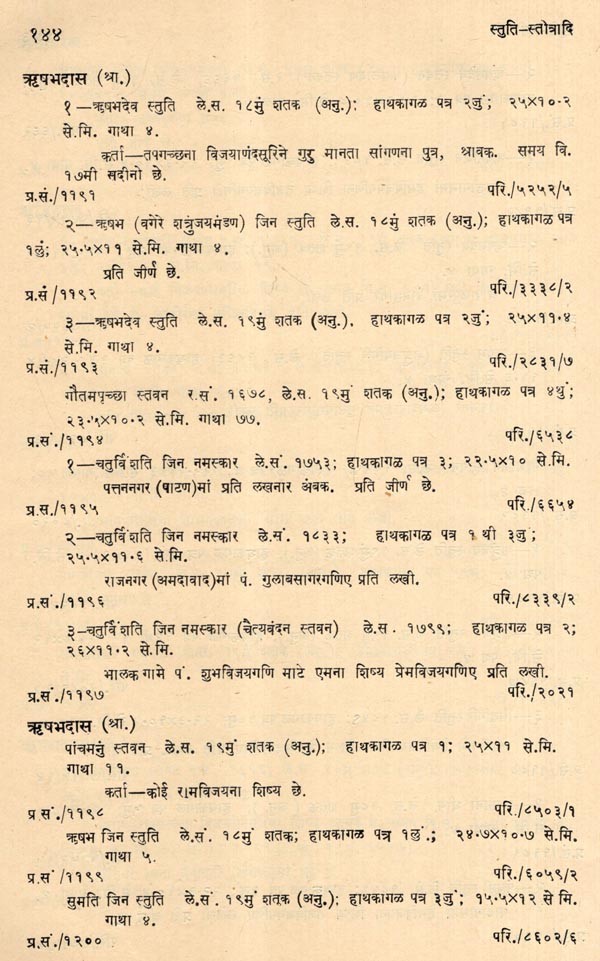 १४४ स्तुति-स्तोत्रादि
ऋषभदास (श्रा.)
१—ऋषभदेव स्तुति ले.स. १८मुं शतक (अनु.); हाथकागळ पत्र २जुं; २५×१०.२
से.मि. गाथा ४.
कर्ता—तपगच्छना विजयाणंदसूरिने गुरु मानता सांगणना पुत्र, श्रावक. समय वि.
१७मी सदीनो छे.
प्र.सं./११९१ परि./५२५२/५
२—ऋषभ (वगेरे शत्रुंजयमंडण) जिन स्तुति ले.स. १८मुं शतक (अनु.); हाथकागळ पत्र
१लुं; २५.५×११ से.मि. गाथा ४.
प्रति जीर्ण छे.
प्र.सं/११९२ परि./३३३८/२
३—ऋषभदेव स्तुति ले.स. १९मुं शतक (अनु.). हाथकागळ पत्र २जुं; २५×११.४
से.मि. गाथा ४.
प्र.सं./११९३ परि./२८३१/७
गौतमपृच्छा स्तवन र.सं. १६७८, ले.स. १९मुं शतक (अनु.); हाथकागळ पत्र ४थुं;
२३.५×१०.२ से.मि. गाथा ७७.
प्र.सं./११९४ परि./६५३८
१—चतुर्विंशति जिन नमस्कार ले.सं. १७५३; हाथकागळ पत्र ३; २२.५×१० से.मि.
पत्तननगर (पाटण)मां प्रति लखनार अंबक. प्रति जीर्ण छे.
प्र.स./११९५ परि./६६५४
२—चतुर्विंशति जिन नमस्कार ले.सं. १८३३; हाथकागळ पत्र १थी ३जुं;
२५.५×११.६ से.मि.
राजनगर (अमदावाद)मां पं. गुलाबसागरगणिए प्रति लखी.
प्र.सं./११९६ परि./८३३९/२
३-चतुर्विंशति जिन नमस्कार (चैत्यवंदन स्तवन) ले.स. १७९९; हाथकागळ पत्र २;
२६×११.२ से.मि.
भालक गामे पं. शुभविजयगणि माटे एमना शिष्य प्रेमविजयगणिए प्रति लखी.
प्र.सं./११९७ परि./२०२१
ऋषभदास (श्रा.)
पांचमनुं स्तवन ले.स. १९मुं शतक (अनु.); हाथकागळ पत्र १; २५×११ से.मि.
गाथा ११.
कर्ता—कोई रामविजयना शिष्य छे.
प्र.सं./११९८ परि./८५०३/१
ऋषभ जिन स्तुति ले.सं. १८मुं शतक; हाथकागळ पत्र १लुं.; २४.७×१०.७ से.मि.
गाथा ५.
प्र.सं/११९९ परि./६०५९/२
सुमति जिन स्तुति ले.सं. १९मुं शतक (अनु.); हाथकागळ पत्र ३जुं; १५.५×१२ से.मि.
गाथा ४.
प्र.सं./१२०० परि./८६०२/६